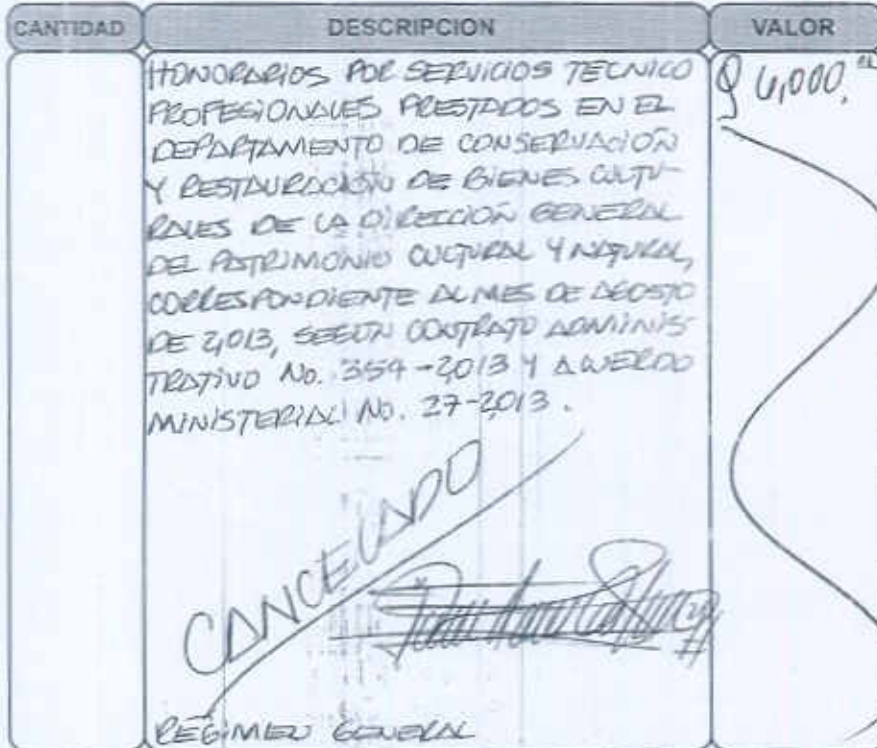 CANTIDAD DESCRIPCION VALOR
HONORARIOS POR SERVICIOS TECNICO Q
PROFESIONALES PRESTADOS EN EL
DEPARTAMENTO DE CONSERVACIÓN
Y RESTAURACIÓN DE BIENES CULTU-
RALES DE LA DIRECCIÓN GENERAL
DEL PATRIMONIO CULTURAL Y NATURAL,
CORRESPONDIENTE AL MES DE AGOSTO
DE 2,013, SEGÚN CONTRATO ADMINIS-
TRATIVO No. 354-2013 Y ACUERDO
MINISTERIAL No. 27-2013.
CANCELADO
REGIMEN GENERAL